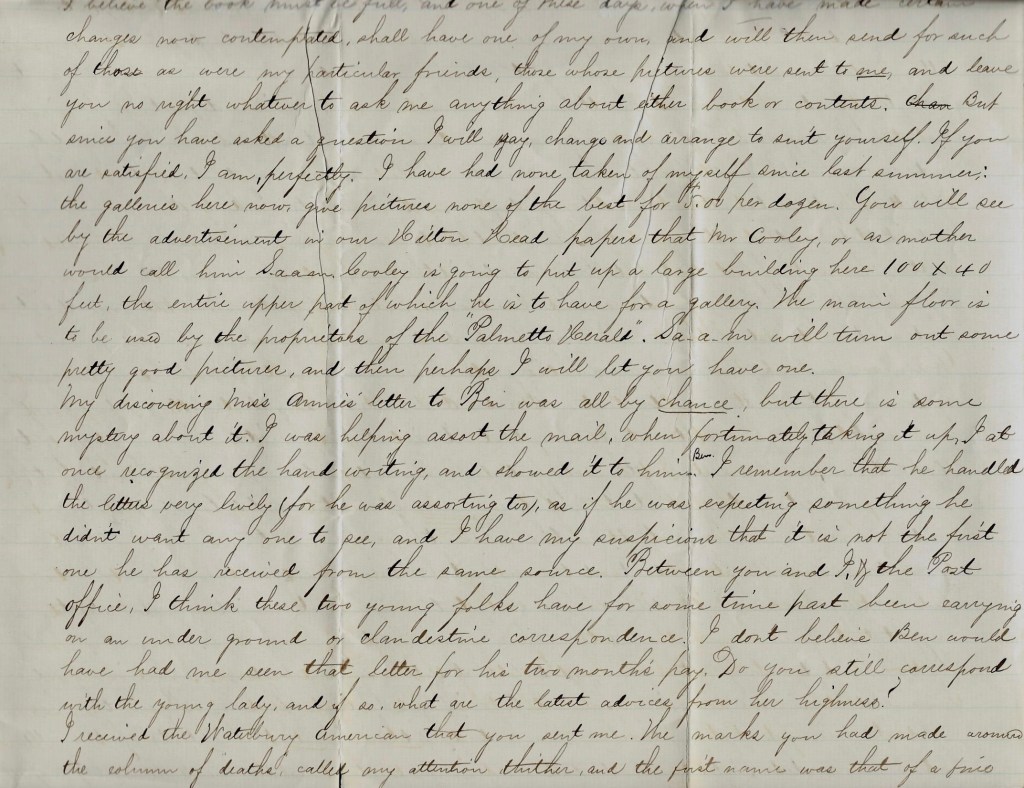 I believe the book must be full, and one of these days, when I have made certain
changes now contemplated, shall have one of my own, and will then send for such
of those as were my particular friends, those whose pictures were sent to me, and leave
you no right whatever to ask me anything about either book or contents. Chan But
since you have asked a question I will say, change and arrange to suit yourself. If you
are satisfied, I am, perfectly. I have had none taken of myself since last summer;
the galleries here now, give pictures none of the best for $5.00 per dozen. You will see
by the advertisement in our Hilton Head papers that Mr Cooley, or as mother
would call him Saaam Cooley is going to put up a large building here 100 X 40
feet, the entire upper part of which he is to have for a gallery. The main floor is
to be used by the proprietors of the "Palmetto Herald". Sa-a-m will turn out some
pretty good pictures, and then perhaps I will let you have one.
My discovering Miss Annie's letter to Ben was all by chance, but there is some
mystery about it. I was helping assort the mail, when fortunately taking it up, I at
once recognized the hand writing, and showed it to him Ben. I remember that he handled
the letters very lively (for he was assorting too), as if he was expecting something he
didn't want any one to see, and I have my suspicions that it is not the first
one he has received from the same source. Between you and I, & the Post
office, I think these two young folks have for some time past been carrying
on an under ground or clandestine correspondence. I don't believe Ben would
have had me seen that letter for his two month's pay. Do you still correspond
with the young lady, and if so, what are the latest advices from her highness?
I received the Waterbury American that you sent me. The marks you had made around
the column of deaths, called my attention thither, and the first name was that of a